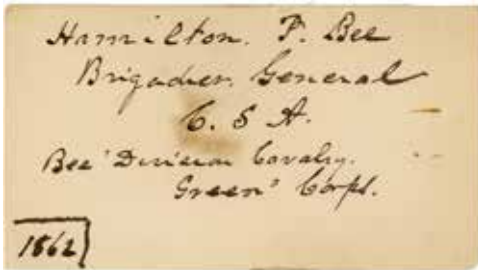 Hamilton. P. Bee
Brigadier. General
C. S A.
Bee' Division Cavalry.
Green' Corps.
1862